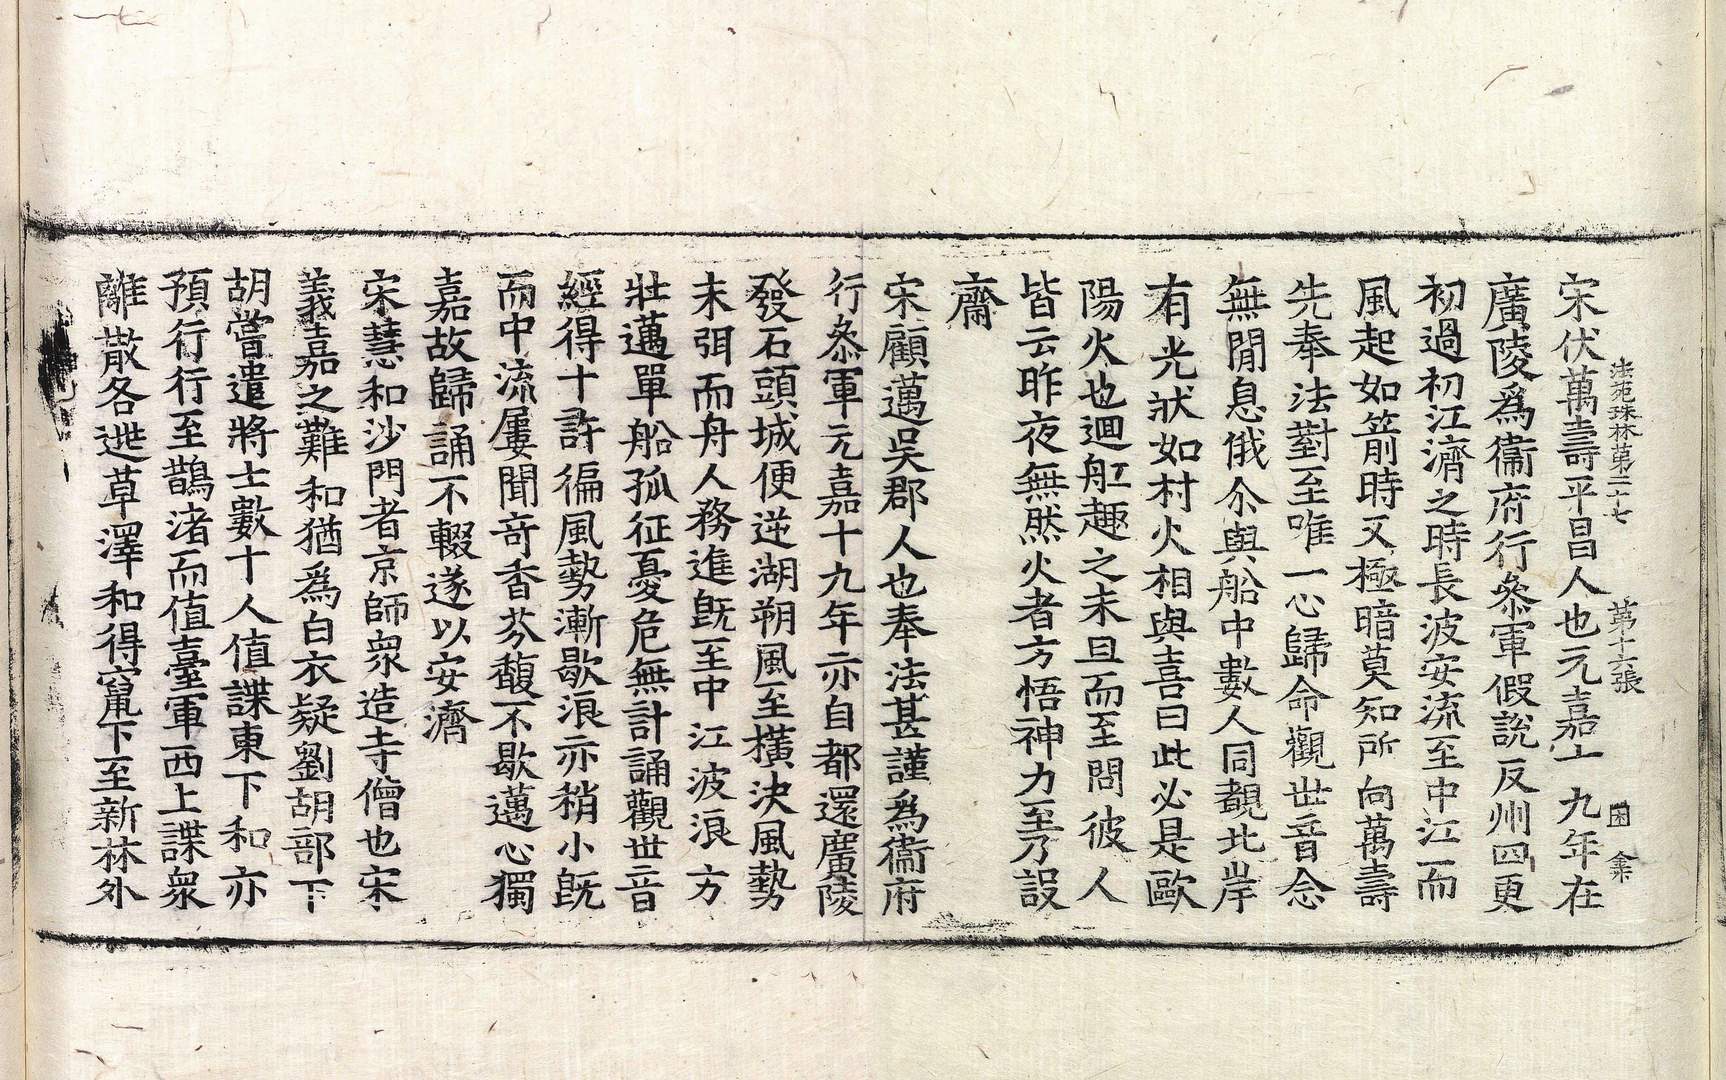 法苑珠林第二十七　第十六張　困　集
宋伏萬壽平昌人也元嘉十九年在
廣陵爲衞府行叅軍假說反州四更
初過初江濟之時長波安流至中江而
風起如箭時又極暗莫知所向萬壽
先奉法勤至唯一心歸命觀世音念
無間息俄尒與船中數人同覩北岸
有光狀如村火相與喜曰此必是歐
陽火也迴舡趣之未旦而至問彼人
皆云昨夜無然火者方悟神力至乃設
齋
宋顧邁吳郡人也奉法甚謹爲衞府
行叅軍元嘉十九年亦自都還廣陵
發石頭城便逆湖朔風至橫決風勢
未弭而舟人務進旣至中江波浪方
壯邁單船孤征憂危無計誦觀世音
經得十許徧風勢漸歇浪亦稍小旣
而中流屢聞奇香芬馥不歇邁心獨
嘉故歸誦不輟遂以安濟
宋慧和沙門者京師衆造寺僧也宋
義嘉之難和猶爲白衣疑劉胡部下
胡嘗遣將士數十人值諜東下和亦
預行行至鵲渚而值臺軍西上諜衆
離散各逃草澤和得竄下至新林外